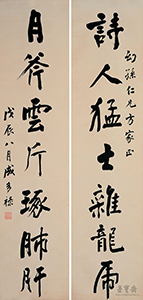 詩人猛士雜龍虎
幼孫仁兄方家正
月斧雲斤琢肺肝
戊辰八月盛多祿